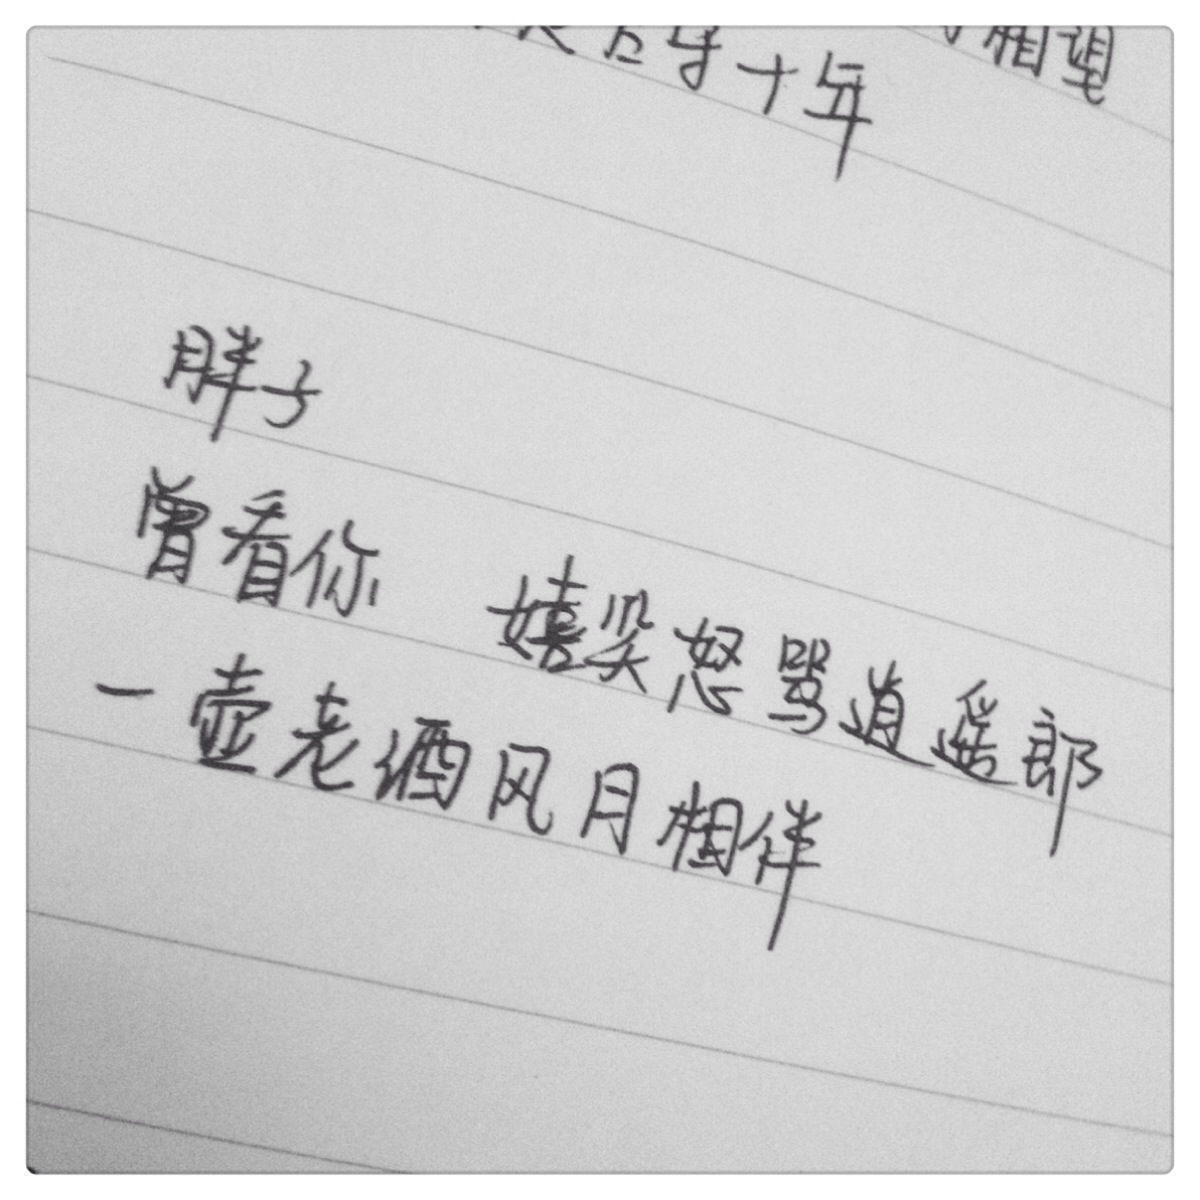 相望
十年
胖子
曾看你 嬉笑怒骂逍遥郎
一壶老酒风月相伴